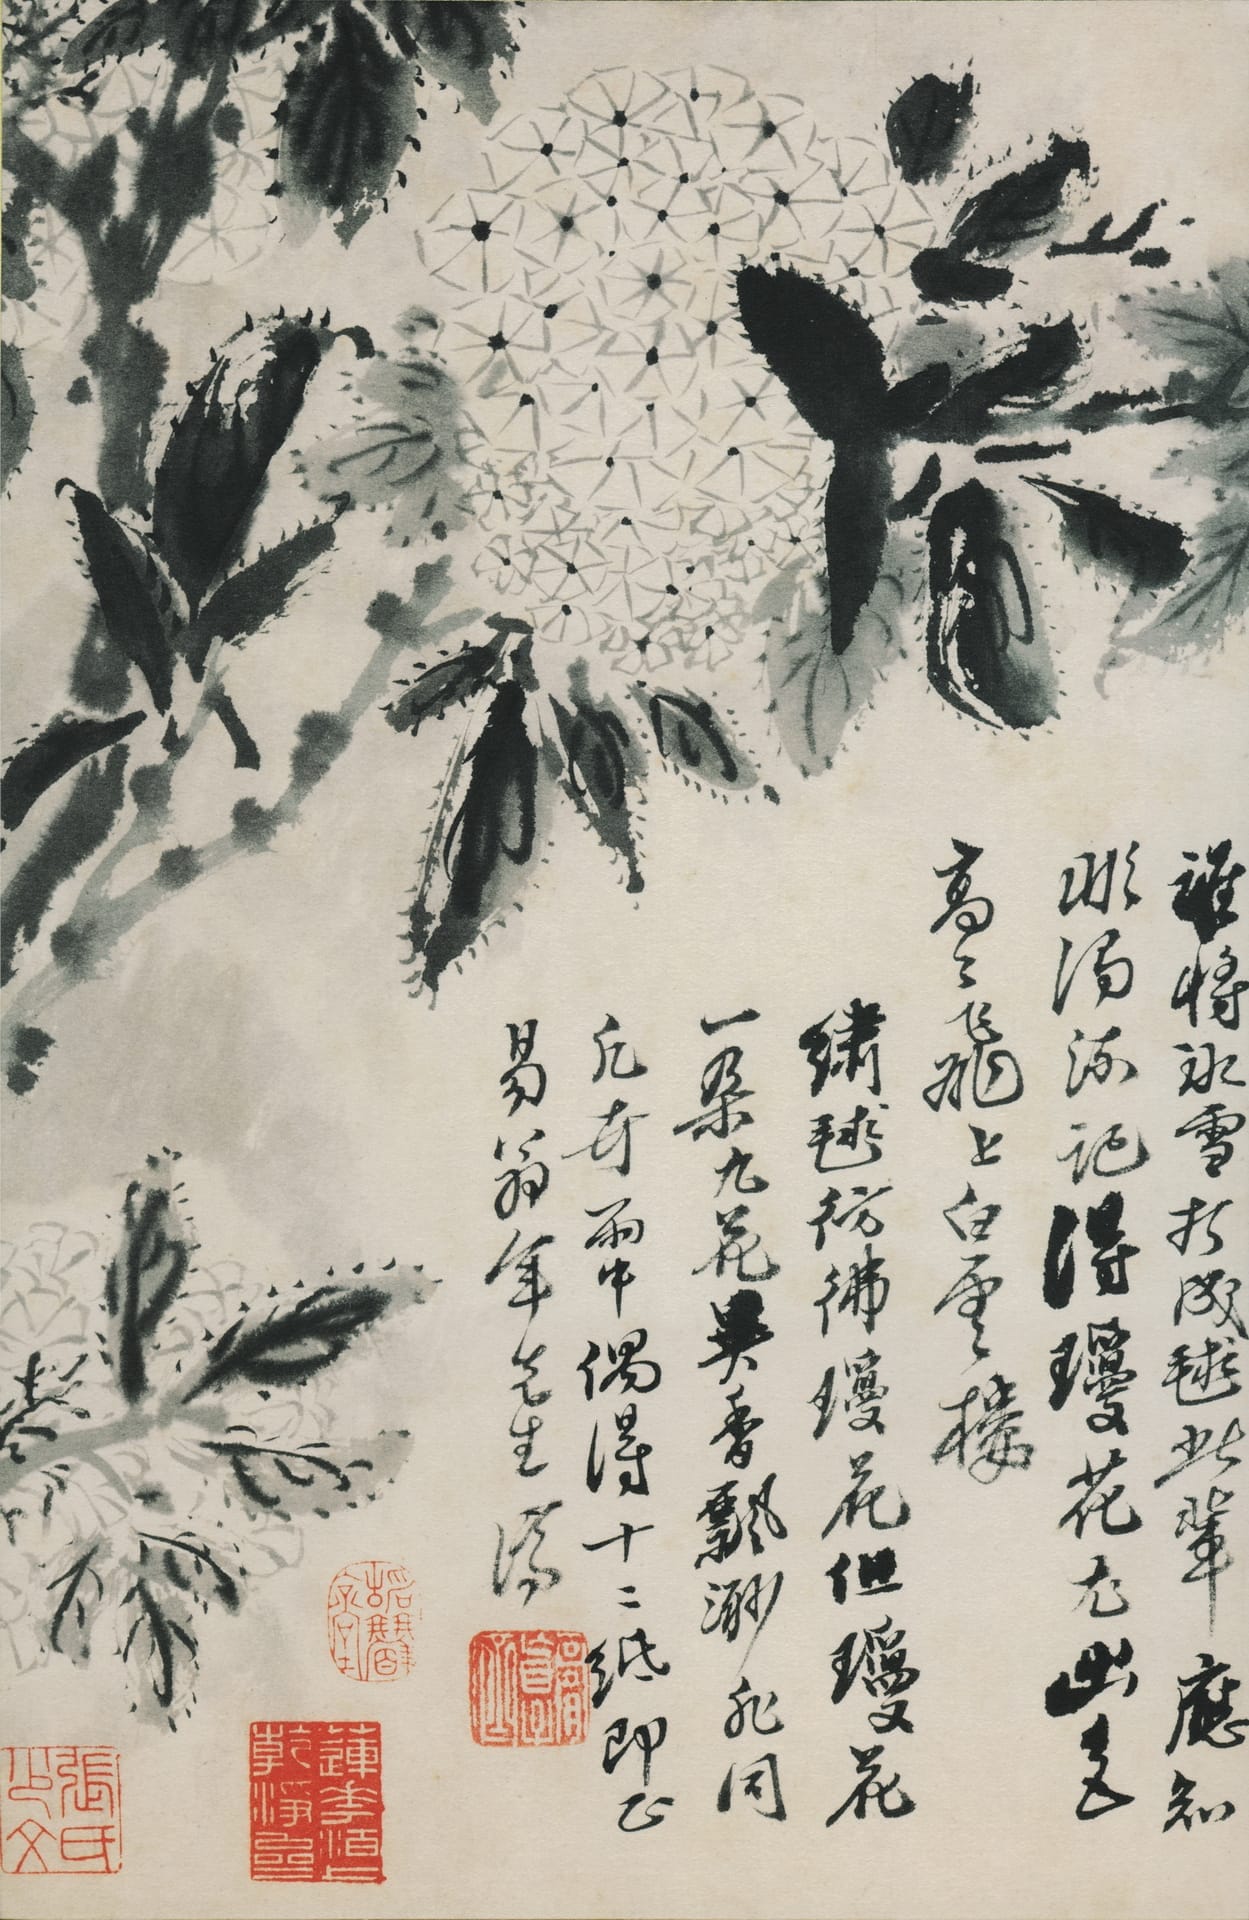 誰將冰雪打成毬此輩應知
彫濁流記得瓊花尤出色
高々飛上白雲樓
繡毬彷彿瓊花但瓊花
一朶九花異香飄渺非同
凡卉雨中偶得十二紙即正
易翁年先生 濟
張氏